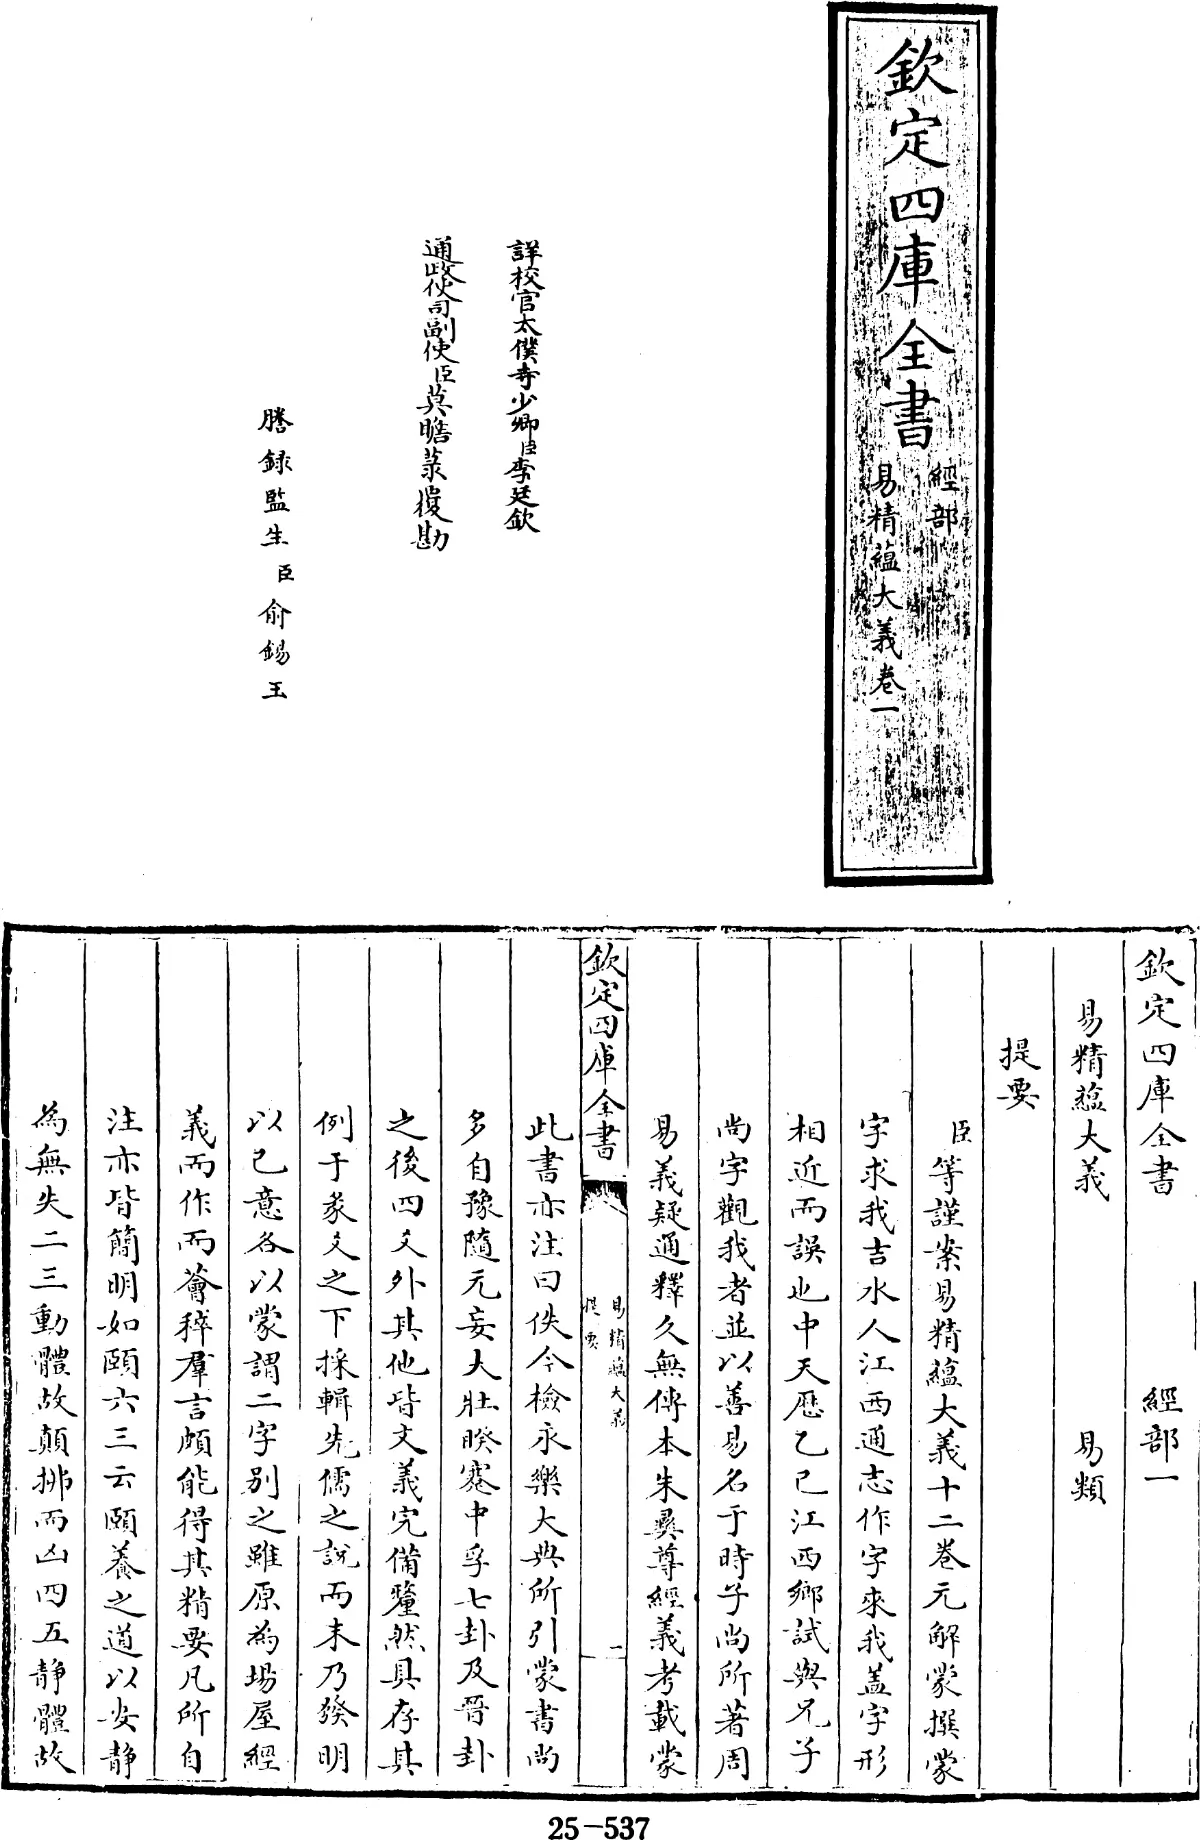 欽定四庫全書
經部
易精藴大義卷一
詳校官太僕寺少卿臣李廷欽
通政使司副使臣莫瞻菉覆勘
謄録監生臣俞錫玉
欽定四庫全書 經部一
易精藴大義 易類
提要
臣等謹案易精藴大義十二卷元解蒙撰蒙
字求我吉水人江西通志作字來我盖字形
相近而誤也中天厯乙巳江西鄉試與兄子
尚字觀我者並以善易名于時子尚所著周
易義疑通釋久無傳本朱彛尊經義考載蒙
欽定四庫全書
易精藴大義
提要
一
此書亦注曰佚今檢永樂大典所引蒙書尚
多自豫隨无妄大壯睽蹇中孚七卦及晉卦
之後四爻外其他皆文義完備釐然具存其
例于彖爻之下採輯先儒之說而末乃發明
以已意各以蒙謂二字别之雖原為塲屋經
義而作而薈稡羣言頗能得其精要凡所自
注亦皆簡明如頤六三云頤養之道以安静
為無失二三動體故顛拂而凶四五静體故
25-537